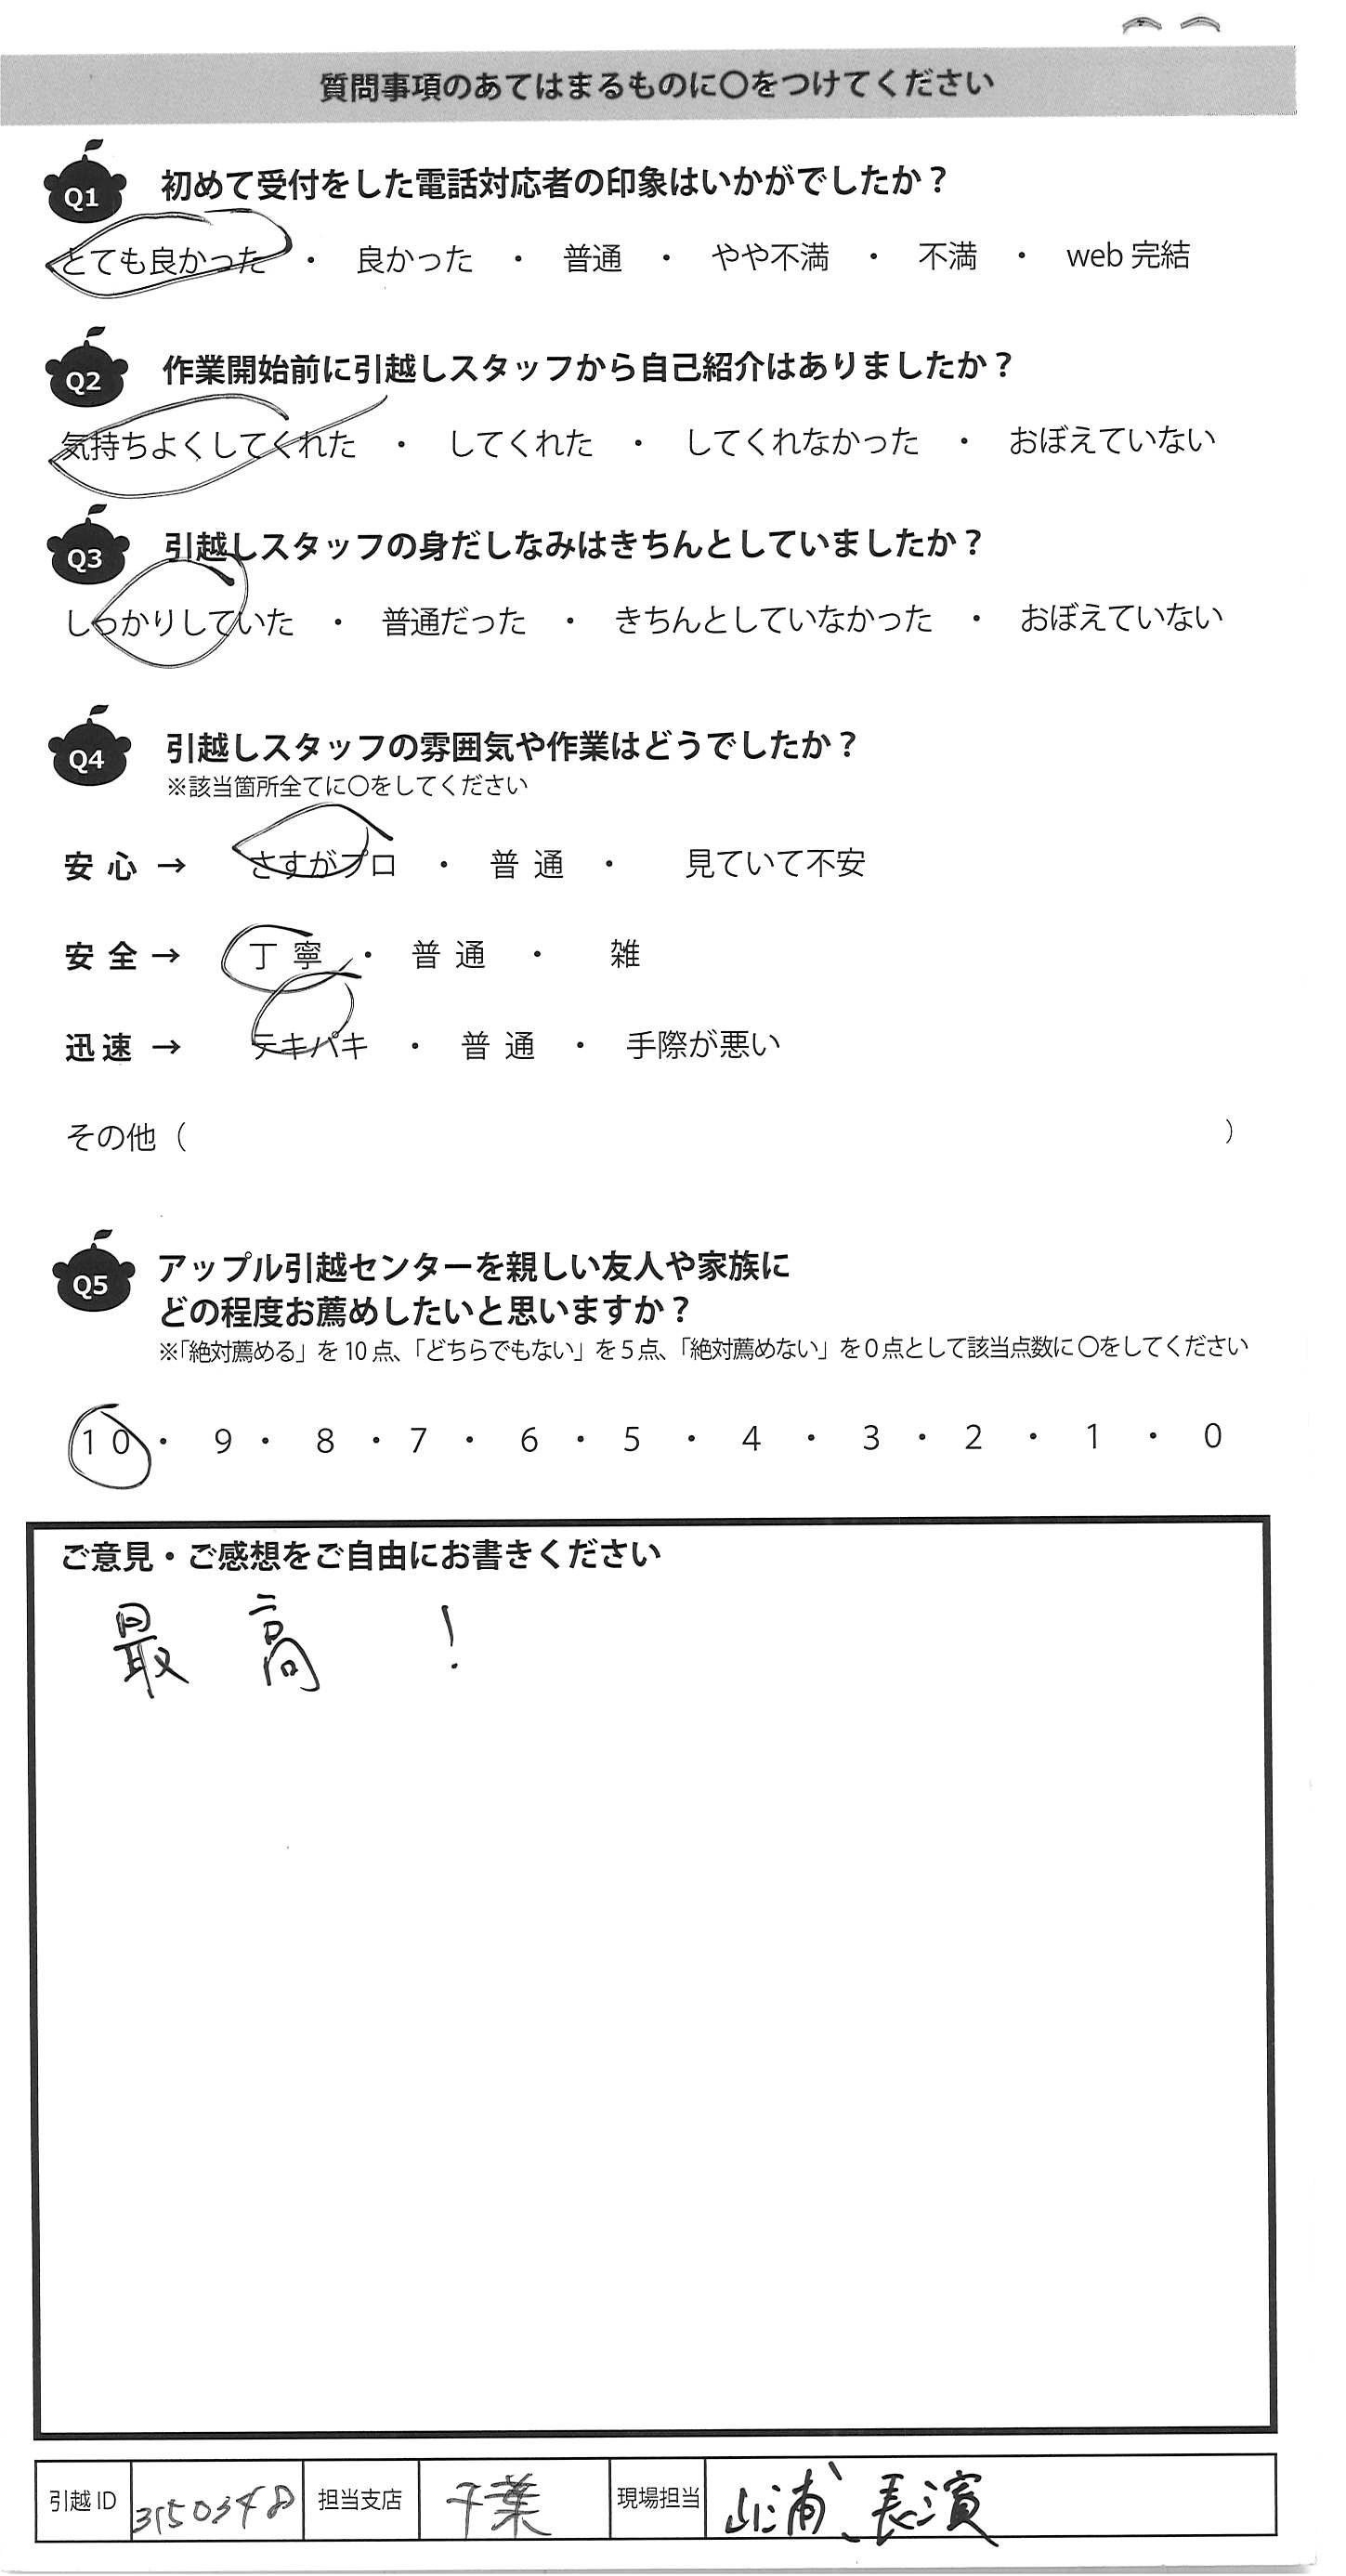 質問事項のあてはまるものに〇をつけてください
Q1 初めて受付をした電話対応者の印象はいかがでしたか？
とても良かった ・ 良かった ・ 普通 ・ やや不満 ・ 不満 ・ web 完結
Q2 作業開始前に引越しスタッフから自己紹介はありましたか？
気持ちよくしてくれた ・ してくれた ・ してくれなかった ・ おぼえていない
Q3 引越しスタッフの身だしなみはきちんとしていましたか？
しっかりしていた ・ 普通だった ・ きちんとしていなかった ・ おぼえていない
Q4 引越しスタッフの雰囲気や作業はどうでしたか？
※該当箇所全てに〇をしてください
安 心 → さすがプロ ・ 普 通 ・ 見ていて不安
安 全 → 丁 寧 ・ 普 通 ・ 雑
迅速 → テキパキ ・ 普 通 ・ 手際が悪い
その他（ ）
Q5 アップル引越センターを親しい友人や家族に
どの程度お薦めしたいと思いますか？
※「絶対薦める」を 10 点、「どちらでもない」を 5 点、「絶対薦めない」を 0 点として該当点数に 〇をしてください
10 ・ 9 ・ 8 ・ 7 ・ 6 ・ 5 ・ 4 ・ 3 ・ 2 ・ 1 ・ 0
ご意見・ご感想をご自由にお書きください
最高！
引越 ID 3150348 担当支店 千葉 現場担当 山浦、長濱